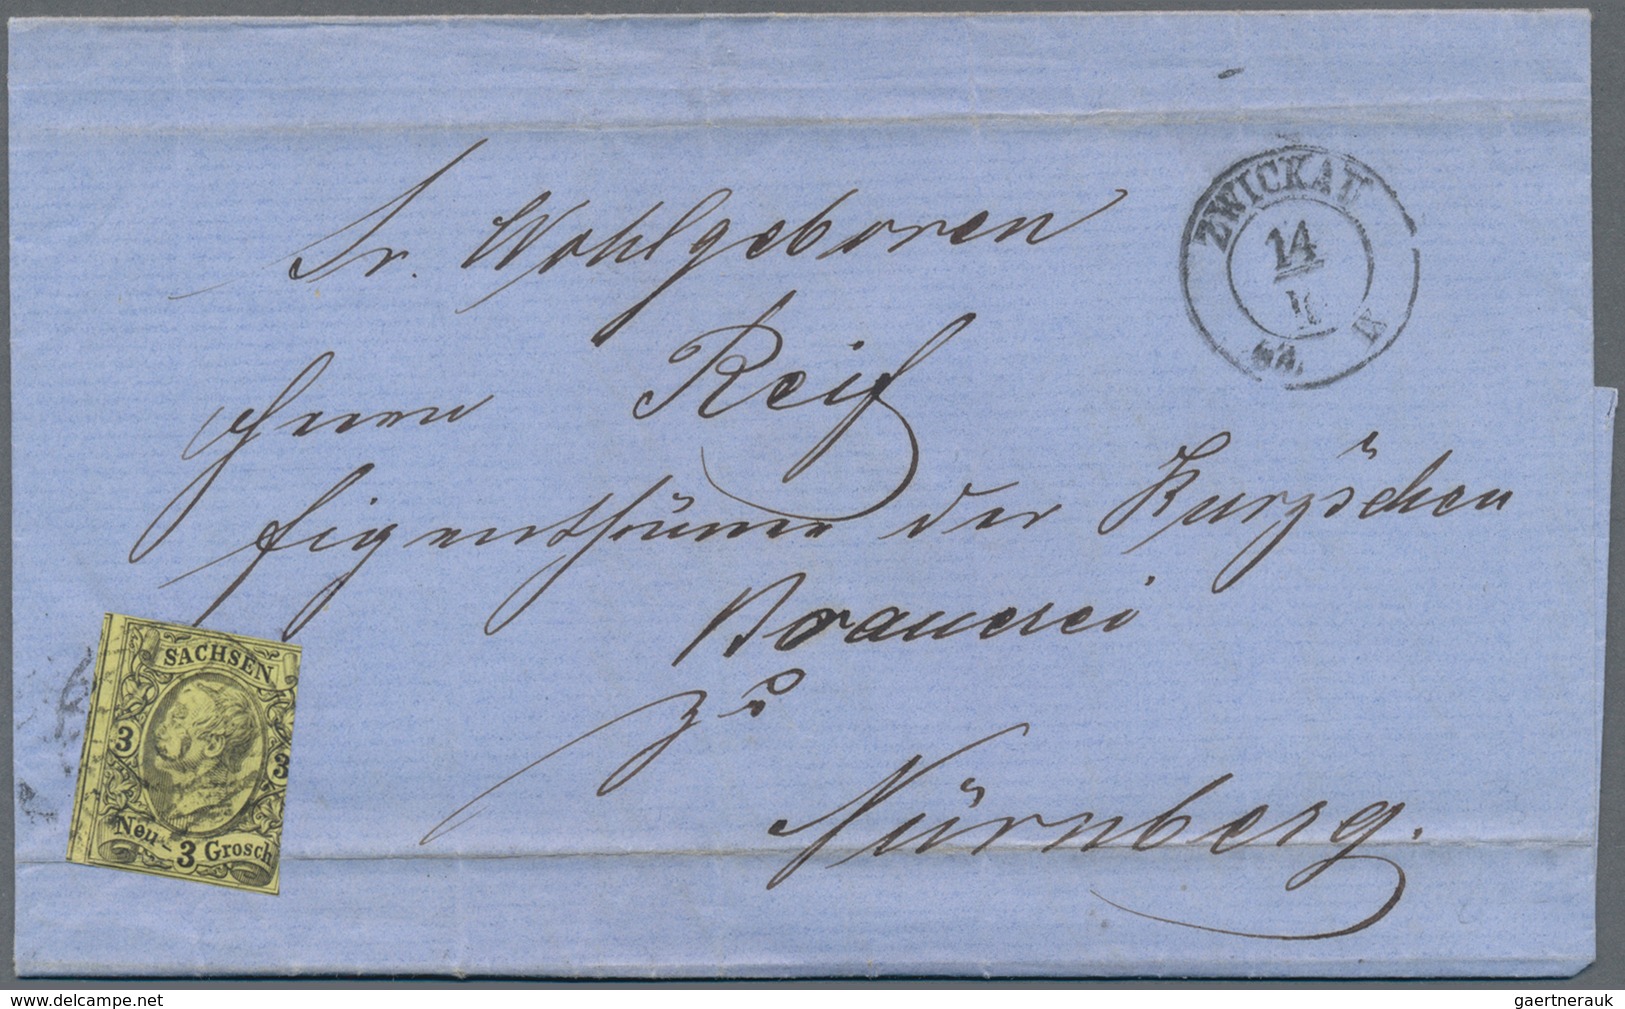 Sr. Wohlgeboren
Herrn Reif
Eigenthümer der Kurz'schen
Brauerei
zu
Nürnberg.
ZWICKAU
14
SACHSEN
3 3
Neu-
3 Grosch
www.delcampe.net
gaertnerauk